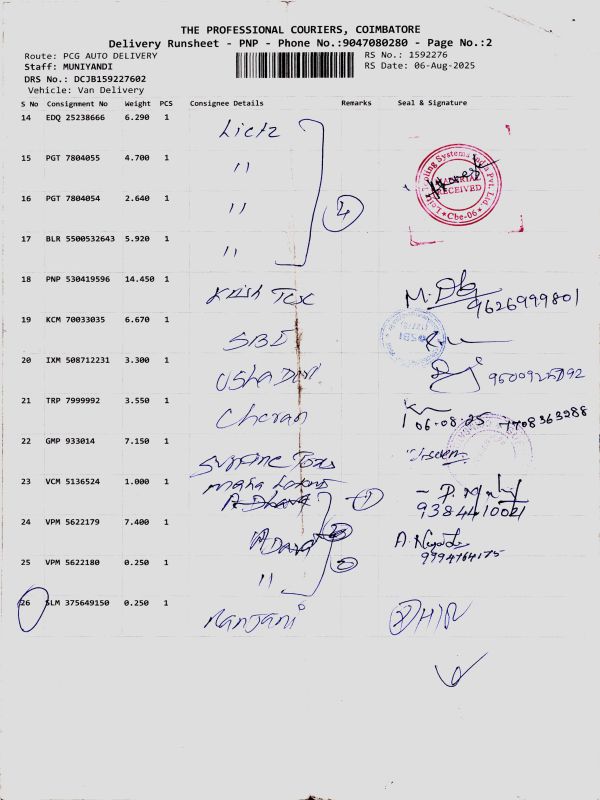 THE PROFESSIONAL COURIERS, COIMBATORE
Delivery Runsheet - PNP - Phone No.:9047080280 - Page No.:2
Route: PCG AUTO DELIVERY RS No.: 1592276
Staff: MUNIYANDI RS Date: 06-Aug-2025
DRS No.: DCJB159227602
Vehicle: Van Delivery
S No Consignment No Weight PCS Consignee Details Remarks Seal & Signature
14 EDQ 25238666 6.290 1
15 PGT 7804055 4.700 1 "
16 PGT 7804054 2.640 1 " 4 MATERIAL RECEIVED Cbe-06
17 BLR 5500532643 5.920 1 "
18 PNP 530419596 14.450 1 Krish Tex 9626999801
19 KCM 70033035 6.670 1 SBI
20 IXM 508712231 3.300 1 Usha
21 TRP 7999992 3.550 1 Cheran 06-08-25 7708363288
22 GMP 933014 7.150 1
23 VCM 5136524 1.000 1 Maha 1
9384410021
24 VPM 5622179 7.400 1 A
9994764175
25 VPM 5622180 0.250 1 "
26 SLM 375649150 0.250 1 Nanjani